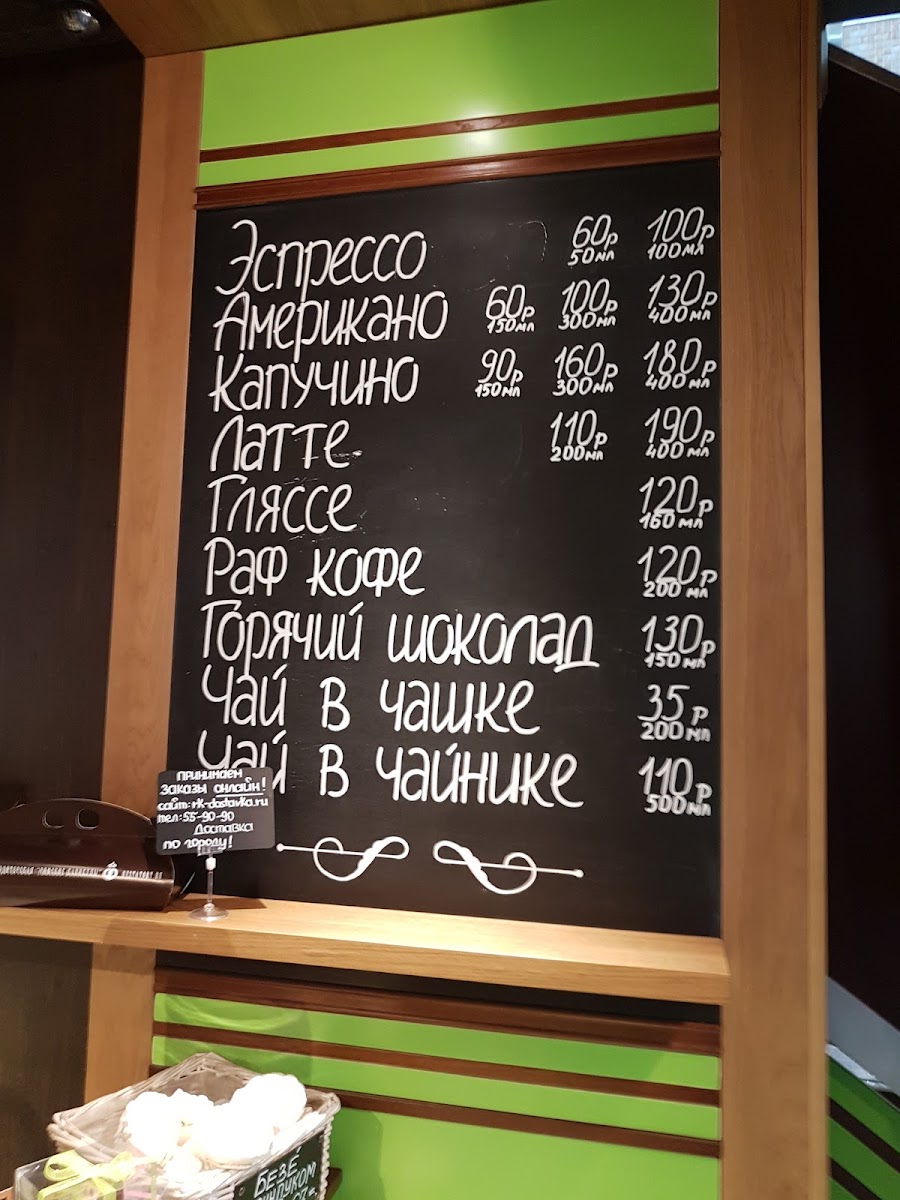 Эспрессо 60р 50мл 100р 100мл
Американо 60р 150мл 100р 300мл 130р 400мл
Капучино 90р 150мл 160р 300мл 180р 400мл
Латте 110р 200мл 190р 400мл
Гляссе 120р 160мл
Раф кофе 120р 200мл
Горячий шоколад 130р 150мл
Чай в чашке 35р 200мл
Чай в чайнике 110р 500мл
Принимаем
заказы онлайн!
сайт: rk-dostavka.ru
тел: 55-90-90
Доставка
по городу!
БЕЗЕ